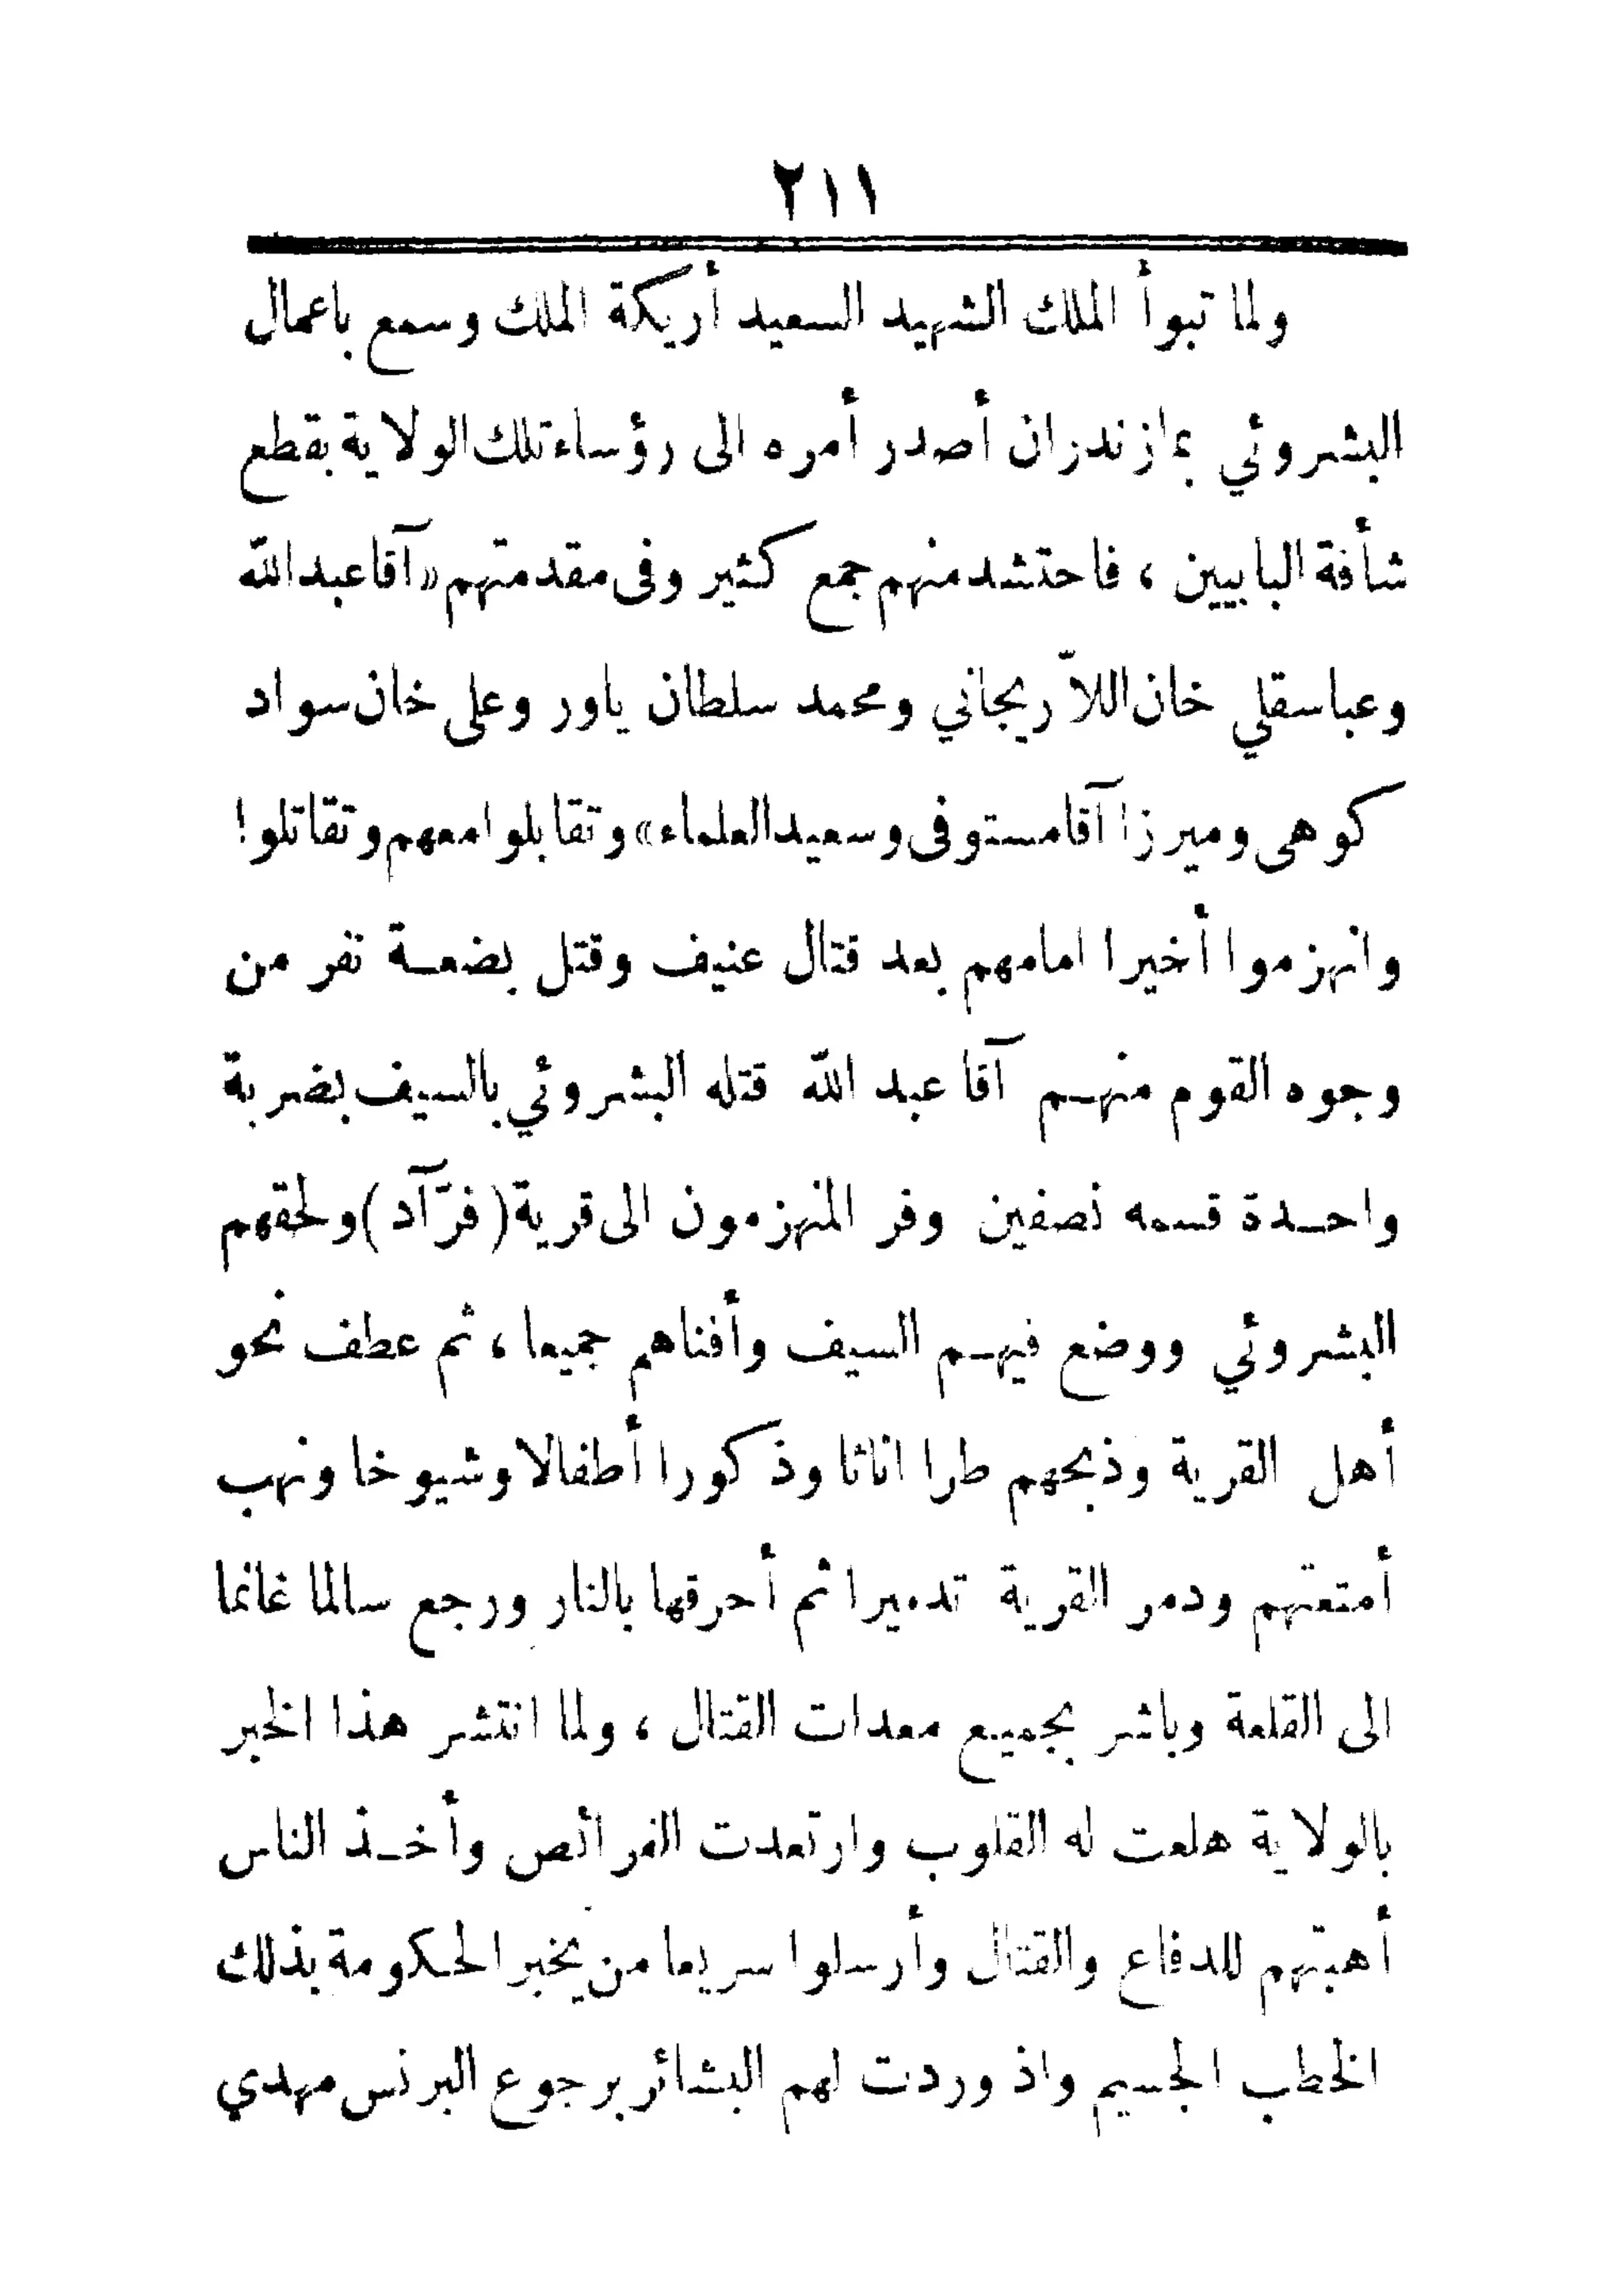 ٢١١
ولما تبوأ الملك الشهيد السعيد أريكة الملك وسمع باعمال
البشروئي بمازندران أصدر أمره الى رؤساء تلك الولاية بقطع
شأفة البابيين ، فاحتشد منهم جمع كثير وفى مقدمتهم «آقا عبد الله
وعباسقلي خان اللاّريجاني ومحمد سلطان ياور وعلى خان سواد
كوهى وميرزا آقا مستوفى وسعيد العلماء» وتقابلوا معهم وتقاتلوا!
وانهزموا أخيرا امامهم بعد قتال عنيف وقتل بضعة نفر من
وجوه القوم منهم آقا عبد الله قتله البشروئي بالسيف بضربة
واحدة قسمه نصفين وفر المنهزمون الى قرية (فرّآد) ولحقهم
البشروئي ووضع فيهم السيف وأفناهم جميعا ، ثم عطف نحو
أهل القرية وذبحهم طرا اناثا وذكورا أطفالا وشيوخا ونهب
أمتعتهم ودمر القرية تدميرا ثم أحرقها بالنار ورجع سالما غانما
الى القلعة وباشر بجميع معدات القتال ، ولما انتشر هذا الخبر
بالولاية هلعت له القلوب وارتعدت الفرائص وأخذ الناس
أهبتهم للدفاع والقتال وأرسلوا سريعا من يخبر الحكومة بذلك
الخطب الجسيم واذ وردت لهم البشائر برجوع البرنس مهدي